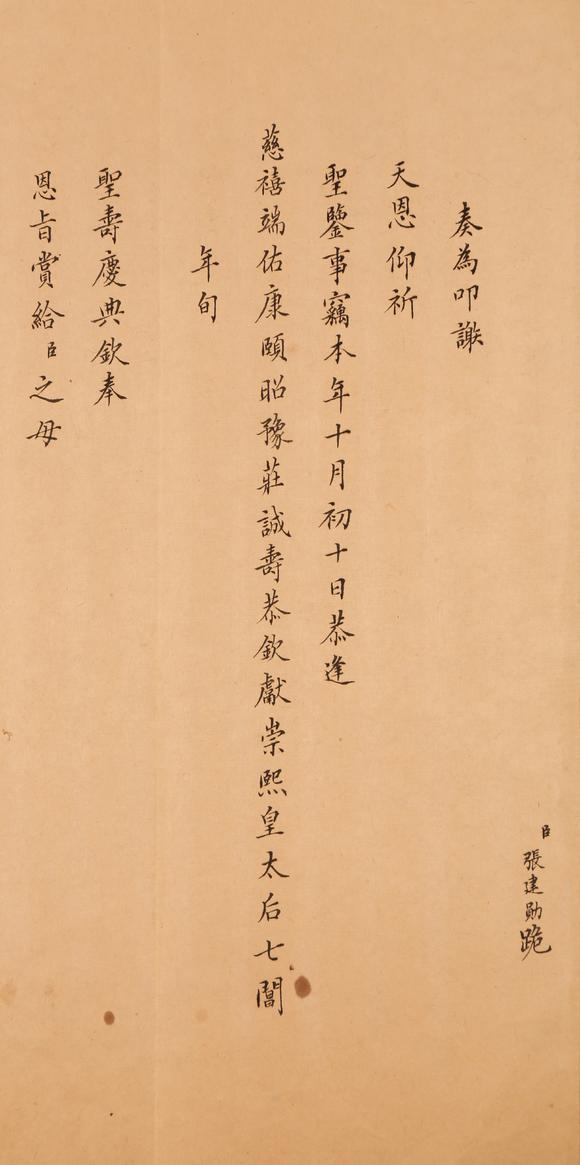 臣張建勛跪
奏為叩謝
天恩仰祈
聖鑒事竊本年十月初十日恭逢
慈禧端佑康頤昭豫莊誠壽恭欽獻崇熙皇太后七
年旬
聖壽慶典欽奉
恩旨賞給臣之母